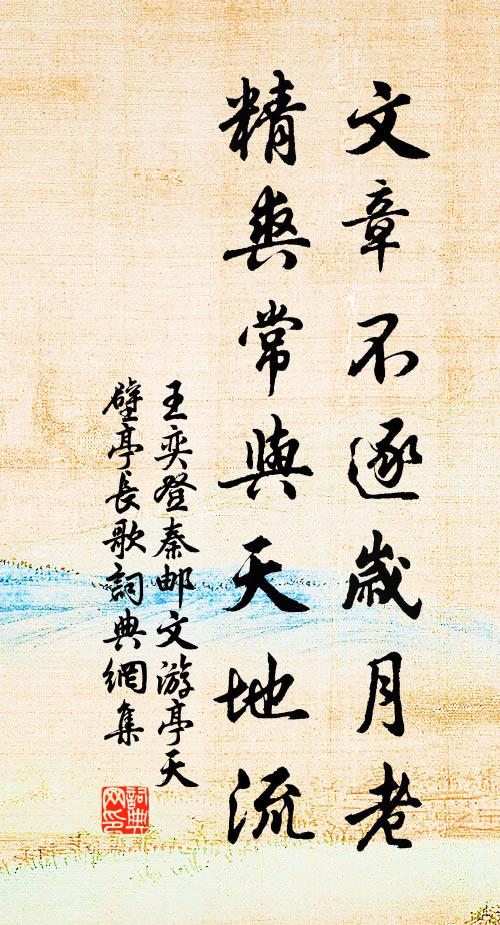 文章不逐歲月老
精爽常與天地流
王奕登秦邮文游亭天
壁亭長歌詞典網集
詞典
网印